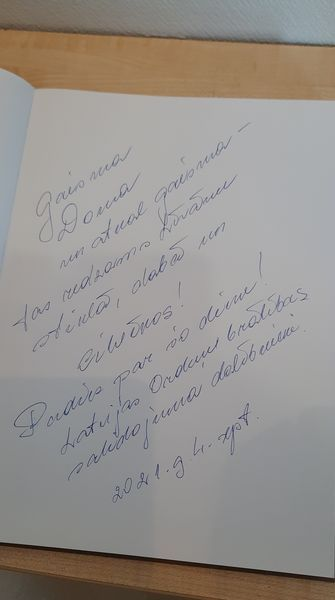 Gaisma
Doma
un atkal gaisma –
tas redzams Līvānu
stiklā, dabā un
cilvēkos!
Paldies par šo dienu!
Latvijas Ordeņu brālības
salidojuma dalībnieki.
2021. g. 4. sept.